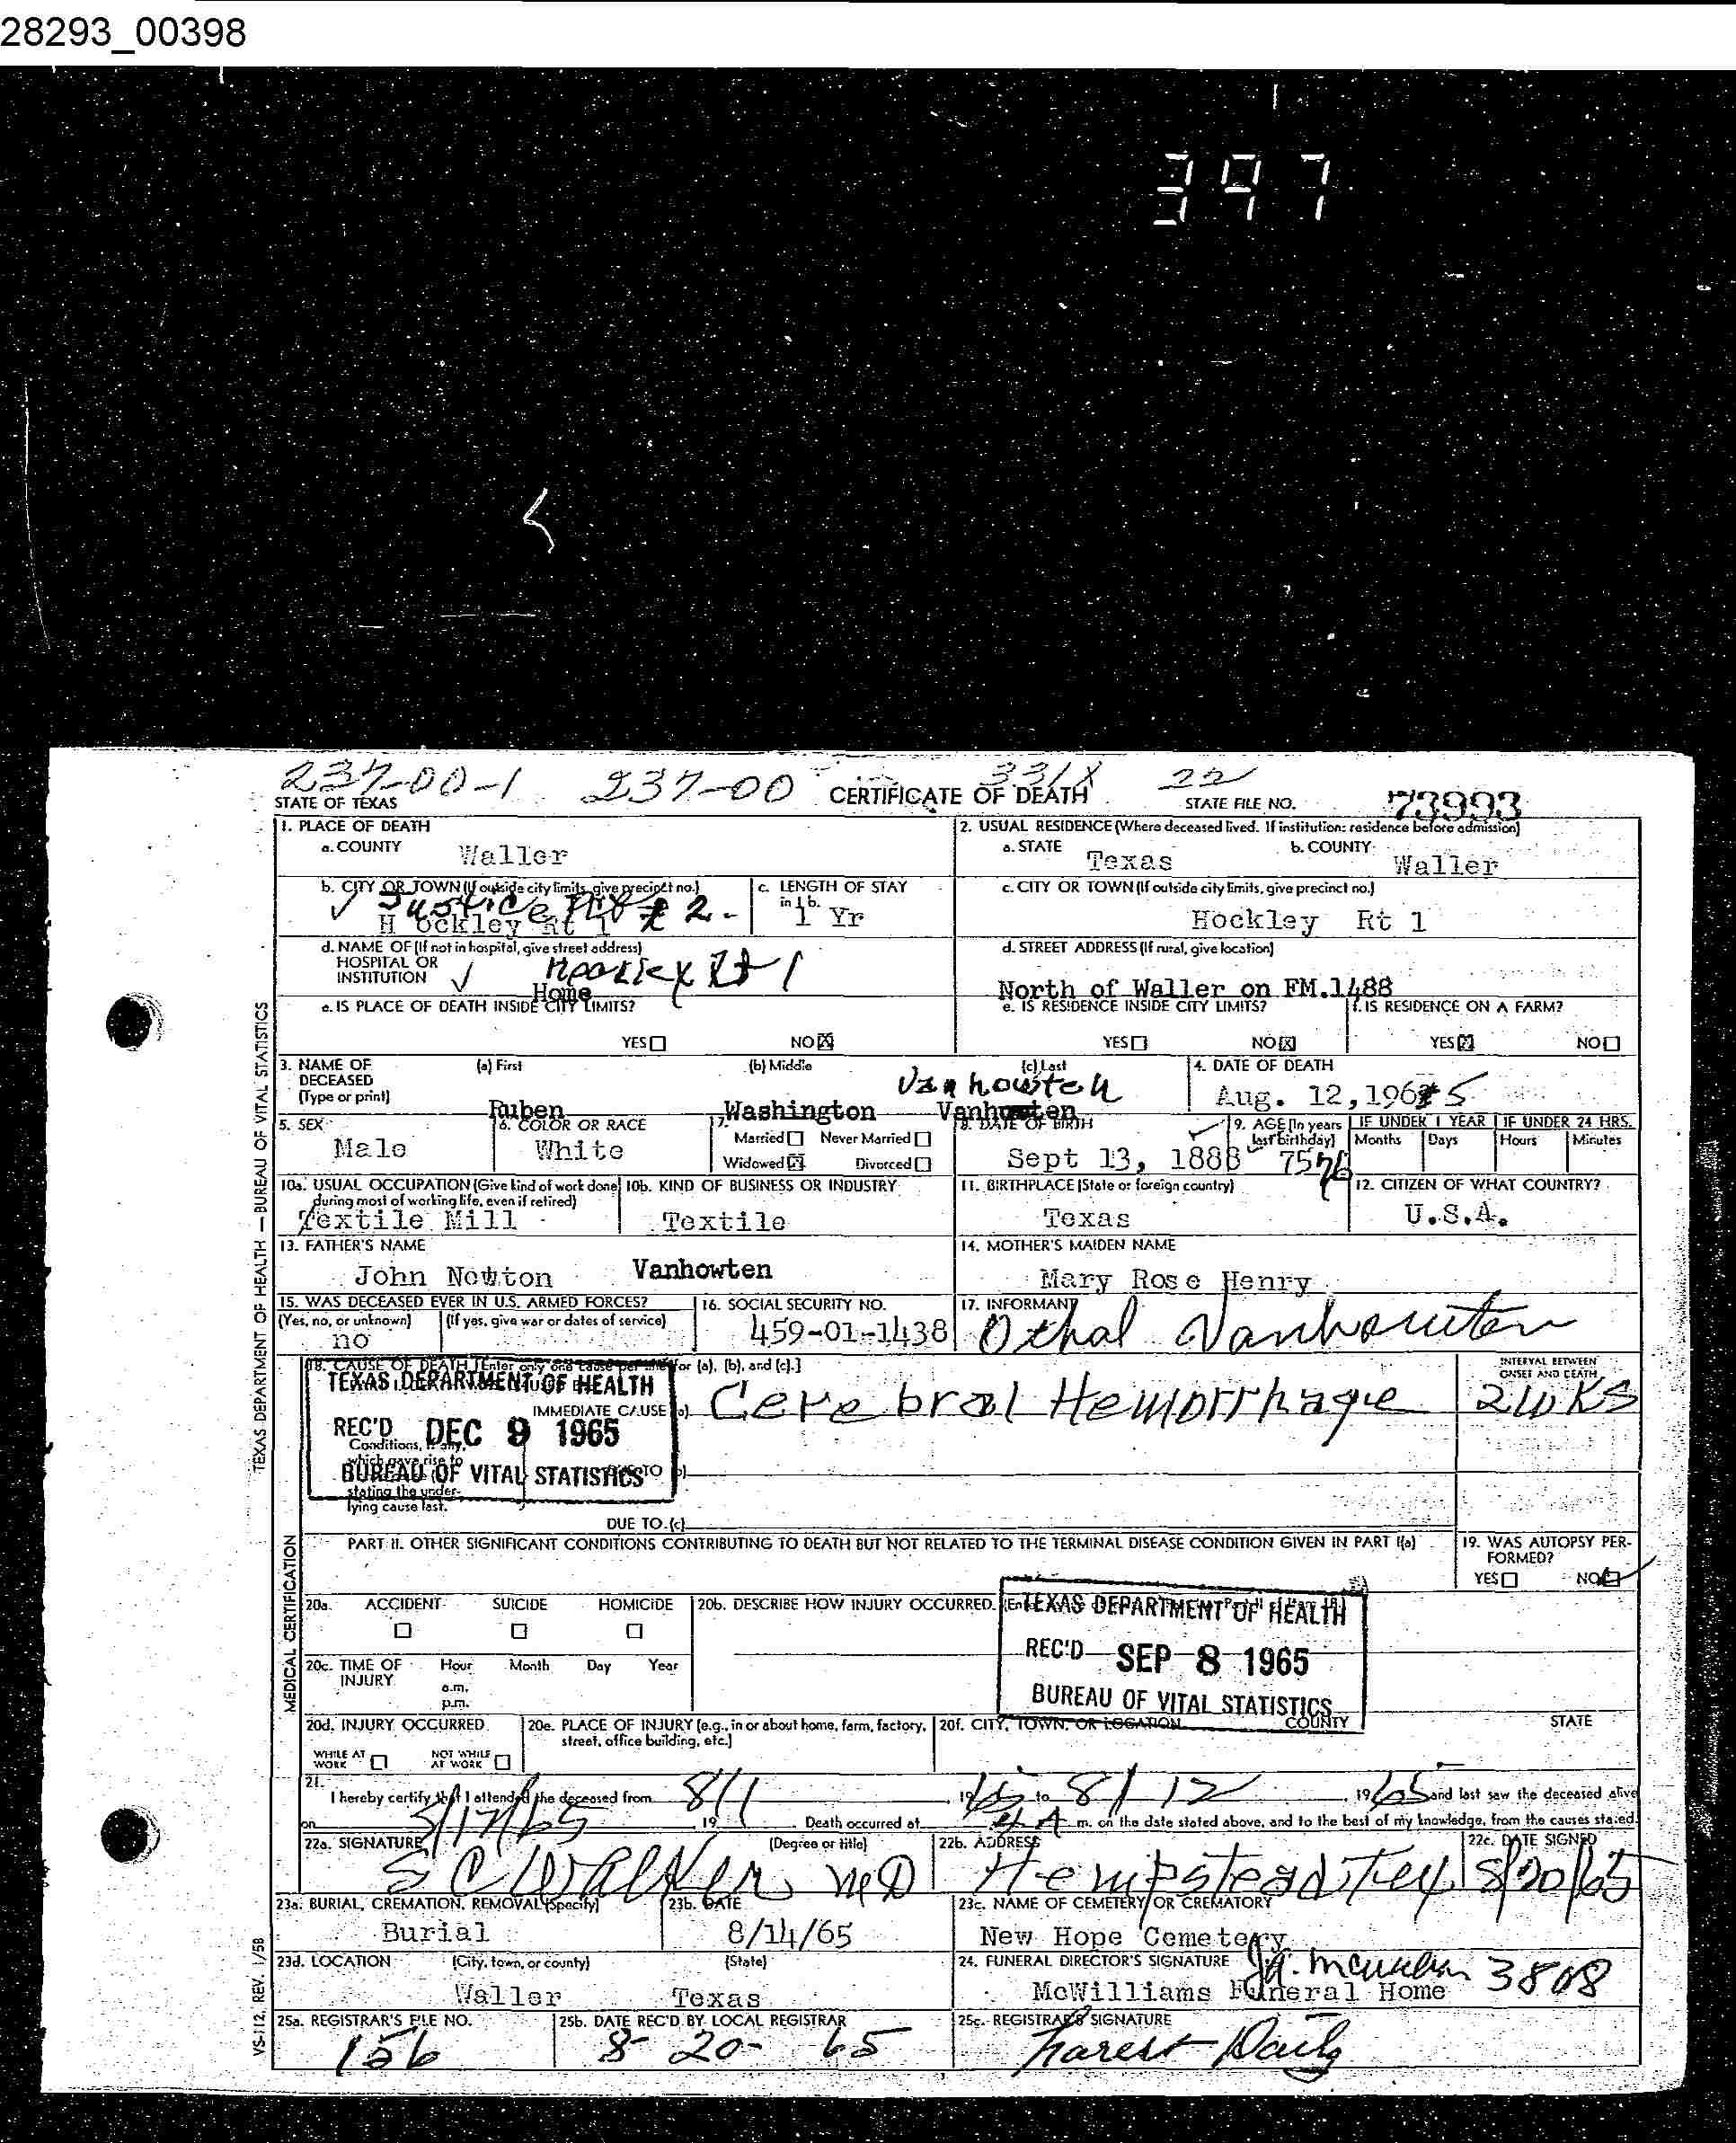 28293_00398
397
237-00-1 237-00 CERTIFICATE OF DEATH 331X 22
STATE OF TEXAS STATE FILE NO. 73993
1. PLACE OF DEATH 2. USUAL RESIDENCE (Where deceased lived. If institution: residence before admission)
a. COUNTY Waller a. STATE Texas b. COUNTY Waller
b. CITY OR TOWN (If outside city limits, give precinct no.) c. LENGTH OF STAY in 1b. c. CITY OR TOWN (If outside city limits, give precinct no.)
Justice # 2-
Hockley Rt 1 1 Yr Hockley Rt 1
d. NAME OF (If not in hospital, give street address) d. STREET ADDRESS (If rural, give location)
HOSPITAL OR
INSTITUTION Rt 1
Home North of Waller on FM.1488
e. IS PLACE OF DEATH INSIDE CITY LIMITS? e. IS RESIDENCE INSIDE CITY LIMITS? f. IS RESIDENCE ON A FARM?
YES NO X YES NO X YES X NO
3. NAME OF DECEASED (Type or print) (a) First (b) Middle (c) Last 4. DATE OF DEATH
Vanhowten
Ruben Washington Aug. 12, 1965
5. SEX 6. COLOR OR RACE 7. Married Never Married 8. DATE OF BIRTH 9. AGE (In years last birthday) IF UNDER 1 YEAR IF UNDER 24 HRS.
Months Days Hours Minutes
Male White Widowed X Divorced Sept 13, 1888 76
10a. USUAL OCCUPATION (Give kind of work done during most of working life, even if retired) 10b. KIND OF BUSINESS OR INDUSTRY 11. BIRTHPLACE (State or foreign country) 12. CITIZEN OF WHAT COUNTRY?
Textile Mill Textile Texas U.S.A.
13. FATHER'S NAME 14. MOTHER'S MAIDEN NAME
John Newton Vanhowten Mary Rose Henry
15. WAS DECEASED EVER IN U.S. ARMED FORCES? 16. SOCIAL SECURITY NO. 17. INFORMANT
(Yes, no, or unknown) (If yes, give war or dates of service)
no 459-01-1438 Othal Vanhowten
18. CAUSE OF DEATH [Enter only one cause per line for (a), (b), and (c).] INTERVAL BETWEEN ONSET AND DEATH
TEXAS DEPARTMENT OF HEALTH
IMMEDIATE CAUSE (a) Cerebral Hemorrhage 2 WKS
REC'D DEC 9 1965
Conditions, if any,
which gave rise to
BUREAU OF VITAL STATISTICS
stating the under-
lying cause last.
DUE TO (c)
PART II. OTHER SIGNIFICANT CONDITIONS CONTRIBUTING TO DEATH BUT NOT RELATED TO THE TERMINAL DISEASE CONDITION GIVEN IN PART I(a) 19. WAS AUTOPSY PER-FORMED?
YES NO
20a. ACCIDENT SUICIDE HOMICIDE 20b. DESCRIBE HOW INJURY OCCURRED.
TEXAS DEPARTMENT OF HEALTH
REC'D SEP 8 1965
BUREAU OF VITAL STATISTICS
20c. TIME OF INJURY Hour Month Day Year
a.m.
p.m.
20d. INJURY OCCURRED 20e. PLACE OF INJURY (e.g., in or about home, farm, factory, street, office building, etc.) 20f. CITY, TOWN, OR LOCATION COUNTY STATE
WHILE AT WORK NOT WHILE AT WORK
21. I hereby certify that I attended the deceased from 8/1 1965 to 8/12 1965 and last saw the deceased alive
on 19 Death occurred at 4 A m. on the date stated above, and to the best of my knowledge, from the causes stated.
22a. SIGNATURE (Degree or title) 22b. ADDRESS 22c. DATE SIGNED
S C Walker MD Hempstead, Tex 8/20/65
23a. BURIAL, CREMATION, REMOVAL (Specify) 23b. DATE 23c. NAME OF CEMETERY OR CREMATORY
Burial 8/14/65 New Hope Cemetery
23d. LOCATION (City, town, or county) (State) 24. FUNERAL DIRECTOR'S SIGNATURE
Waller Texas McWilliams Funeral Home 3808
25a. REGISTRAR'S FILE NO. 25b. DATE REC'D BY LOCAL REGISTRAR 25c. REGISTRAR'S SIGNATURE
156 8-20-65
TEXAS DEPARTMENT OF HEALTH — BUREAU OF VITAL STATISTICS
MEDICAL CERTIFICATION
VS-112, REV. 1/58